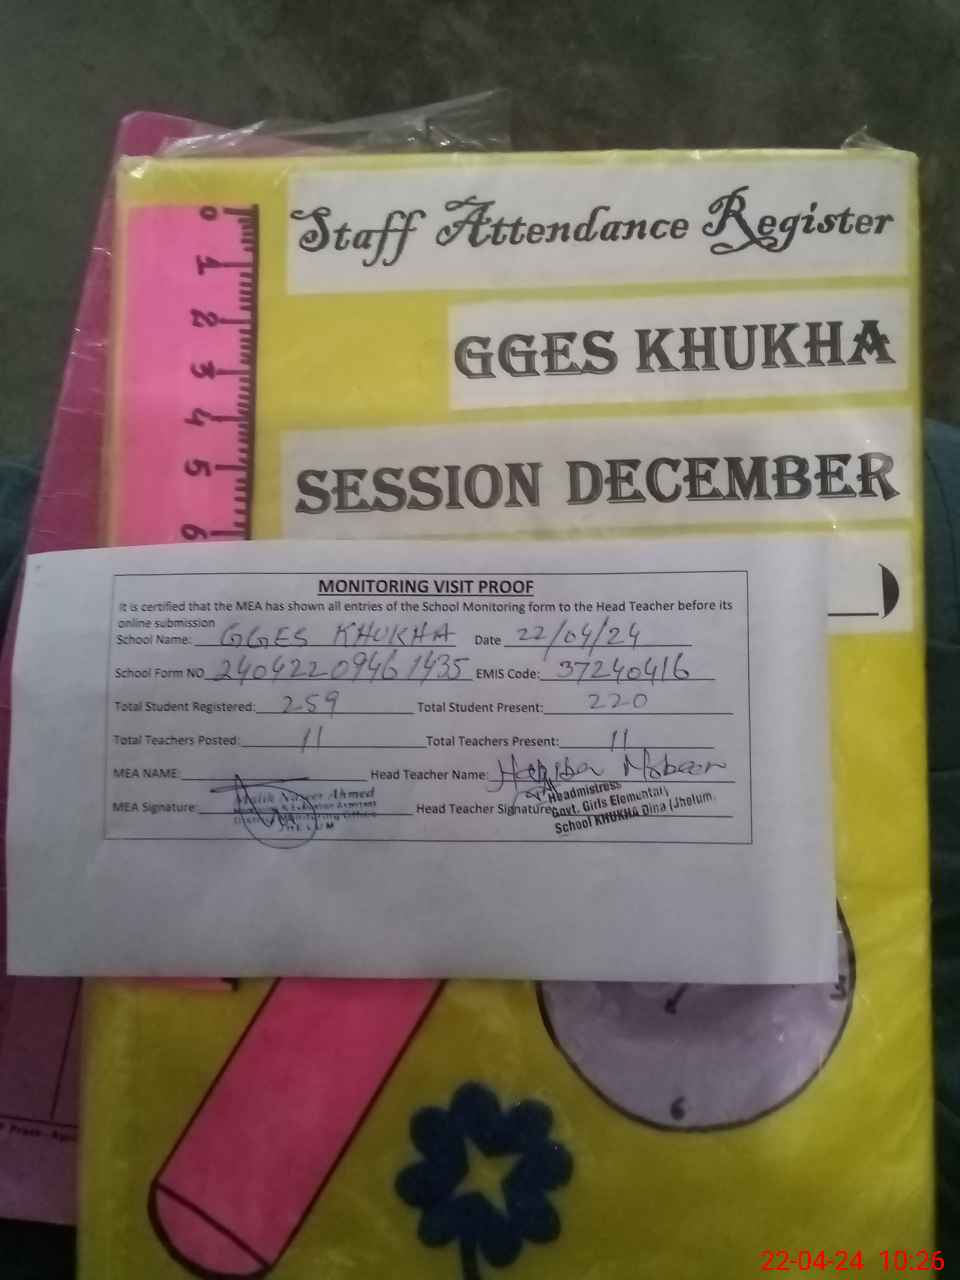 Staff Attendance Register
GGES KHUKHA
SESSION DECEMBER
0
1
2
3
4
5
6
MONITORING VISIT PROOF
It is certified that the MEA has shown all entries of the School Monitoring form to the Head Teacher before its
online submission
School Name: GGES KHUKHA Date 22/04/24
School Form NO 24042209461435 EMIS Code: 37240416
Total Student Registered: 259 Total Student Present: 220
Total Teachers Posted: 11 Total Teachers Present: 11
MEA NAME: Head Teacher Name:
MEA Signature: Malik Naseer Ahmed Head Teacher Signature: Headmistress
Govt. Girls Elementary
School KHUKHA Dina (Jhelum.
JHELUM
6
22-04-24 10:26